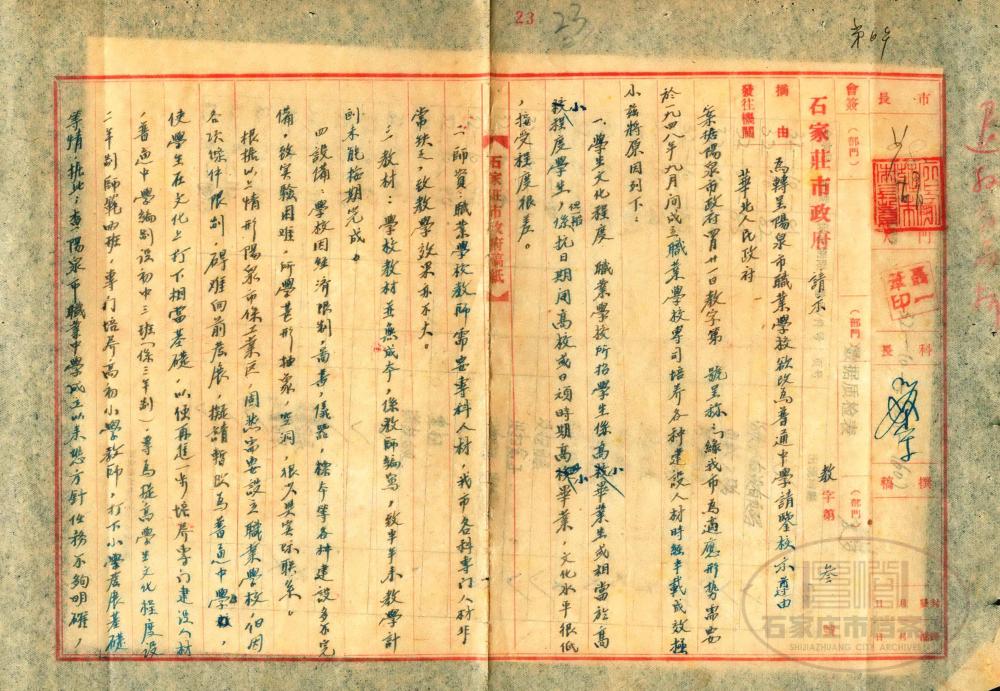 23
23
第69
市長
會簽
（部門）
（部門）
（部門）
科長
撰稿
石家莊市政府
請示
教字第 叁 號
摘由
為轉呈陽泉市職業學校欲改為普通中學請鑒核示遵由
發往機關
華北人民政府
案據陽泉市政府
廿一日教字第　號呈称：緣我市為適應形勢需要
於一九四八年九月间成立職業學校專司培养各种建設人材時經半載成效極
小茲將原因列下：
一、學生文化程度　職業學校所招學生係高小畢業生或相當於高
小程度學生，但招係抗日期间高小或日頑時期高小畢業，文化水平很低
，接受程度很差。
二、師資：職業學校教師需要專科人材，我市各科專门人材非
常缺乏，致教學效果亦不大。
三、教材：學校教材並無成本，係教師編寫，致半年来教學計
劃未能按期完成。
四、設備：學校因經濟限制，圖書，儀器，標本等各种建設多不完
備，致实验困难，所學甚形抽象，空洞，很少與实际联系。
根據以上情形陽泉市係工業区，固然需要設立職業學校但因
各項條件限制，碍难向前發展，擬請暫改為普通中學，
使學生在文化上打下相當基礎，以便再進一步培养專门建设人材
，普通中學編制設初中三班（係三年制）專為提高學生文化程度設
二年制師範四班，專门培养高初小學教師，打下小學發展基礎
等情，據此；查陽泉市職業中學成立以来悉方針任務不夠明確，
石家莊市政府稿紙
石家庄市档案馆
SHIJIAZHUANG CITY ARCHIVES